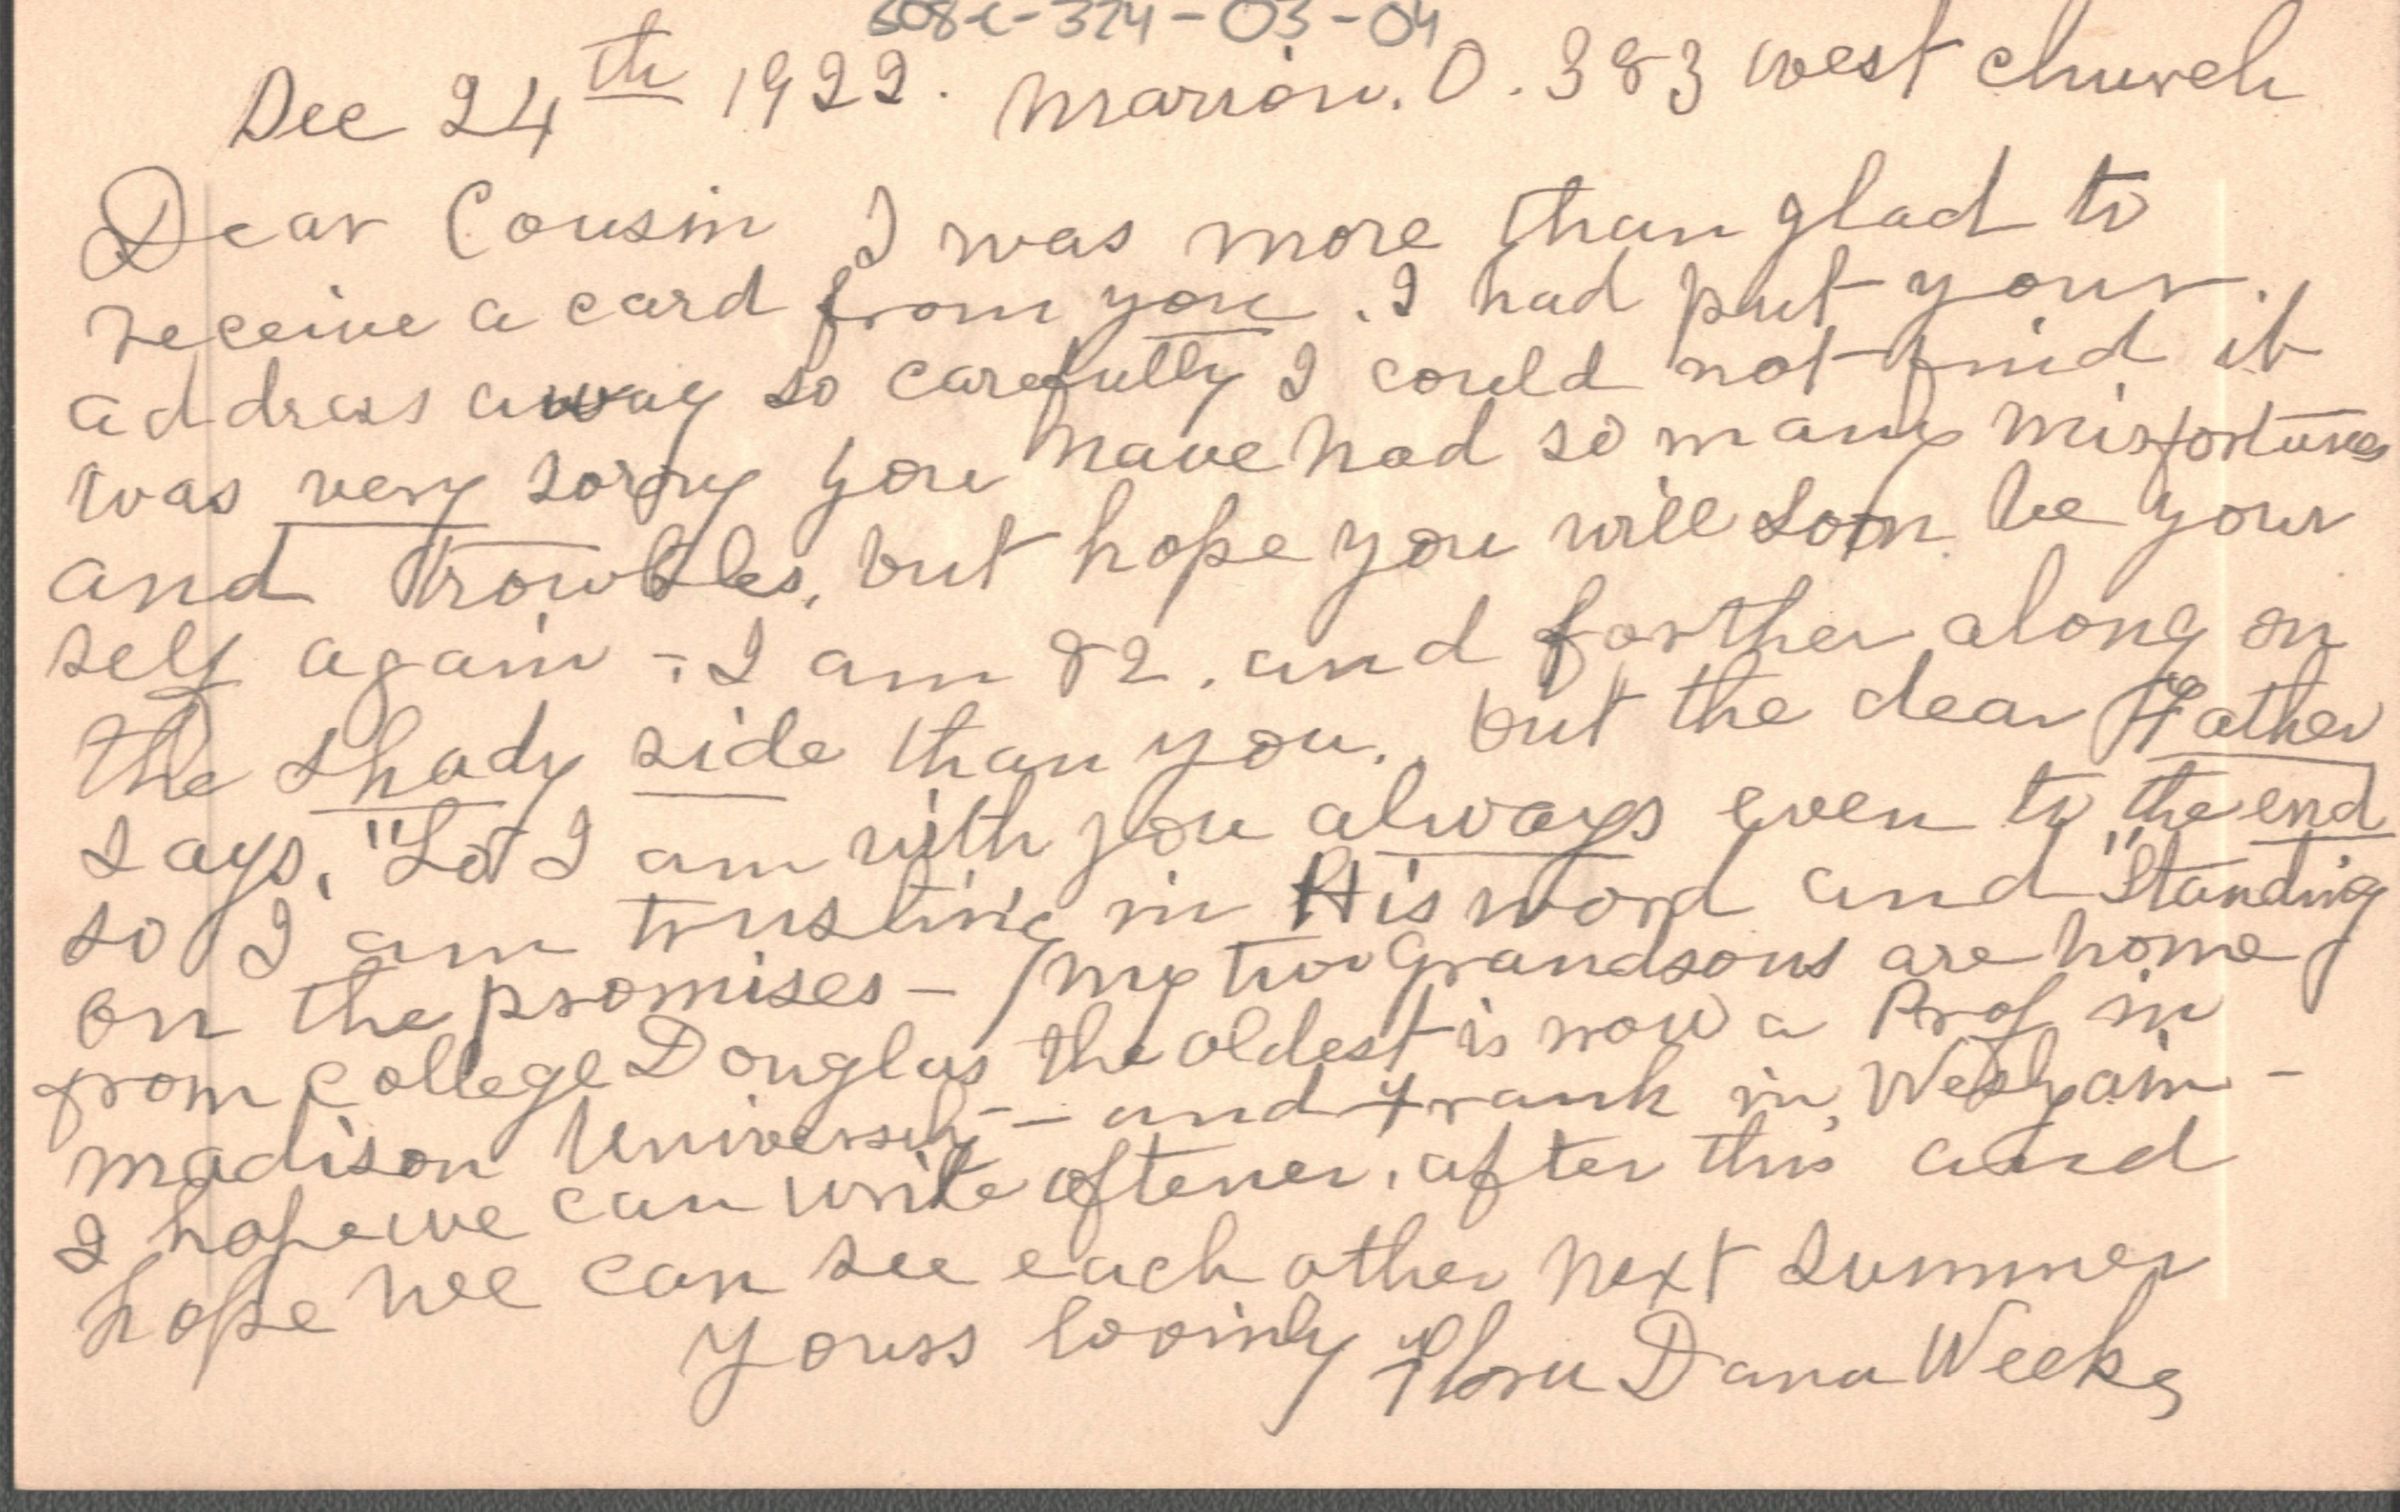 608-c-324-03-04
Dec 24th 1922. Marion. O. 383 west church
Dear Cousin I was more than glad to
receive a card from you. I had put your
address away so carefully I could not find it
was very sorry you have had so many misfortunes
and troubles, but hope you will soon be your
self again -. I am 82. and farther along on
the shady side than you. but the dear Father
says, "Lo I am with you always even to the end"
so I am trusting in His word and "Standing
on the promises - My two Grandsons are home
from college Douglas the oldest is now a Prof in
Madison University -- and Frank in Weslyain -
I hope we can write oftener. after this and
hope we can see each other next summer
Yours lovinly Flora Dana Weeks